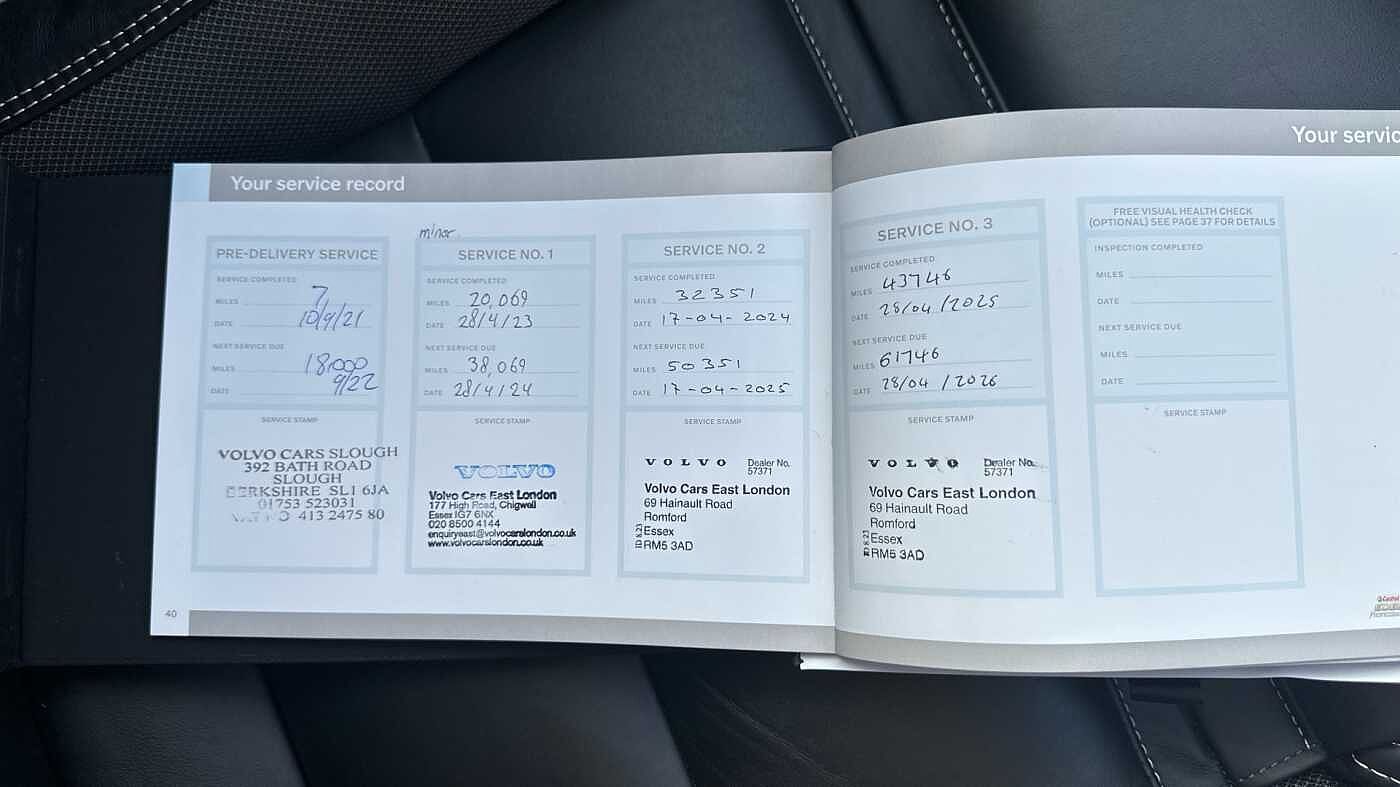 Your service record
PRE-DELIVERY SERVICE
SERVICE COMPLETED
MILES 7
DATE 10/9/21
NEXT SERVICE DUE
MILES 18,000
DATE 9/22
SERVICE STAMP
VOLVO CARS SLOUGH
392 BATH ROAD
SLOUGH
BERKSHIRE SL1 6JA
01753 523031
413 2475 80
minor
SERVICE NO. 1
SERVICE COMPLETED
MILES 20,069
DATE 28/4/23
NEXT SERVICE DUE
MILES 38,069
DATE 28/4/24
SERVICE STAMP
VOLVO
Volvo Cars East London
177 High Road, Chigwell
Essex IG7 6NX
020 8500 4144
enquiryeast@volvocarslondon.co.uk
www.volvocarslondon.co.uk
SERVICE NO. 2
SERVICE COMPLETED
MILES 32351
DATE 17-04-2024
NEXT SERVICE DUE
MILES 50351
DATE 17-04-2025
SERVICE STAMP
VOLVO Dealer No.
57371
Volvo Cars East London
69 Hainault Road
Romford
Essex
RM5 3AD
ID 8.23
40
Your servic
SERVICE NO. 3
SERVICE COMPLETED
MILES 43746
DATE 28/04/2025
NEXT SERVICE DUE
MILES 61746
DATE 28/04/2026
SERVICE STAMP
VOLVO Dealer No.
57371
Volvo Cars East London
69 Hainault Road
Romford
Essex
RM5 3AD
ID 8.23
FREE VISUAL HEALTH CHECK
(OPTIONAL) SEE PAGE 37 FOR DETAILS
INSPECTION COMPLETED
MILES
DATE
NEXT SERVICE DUE
MILES
DATE
SERVICE STAMP
Castrol